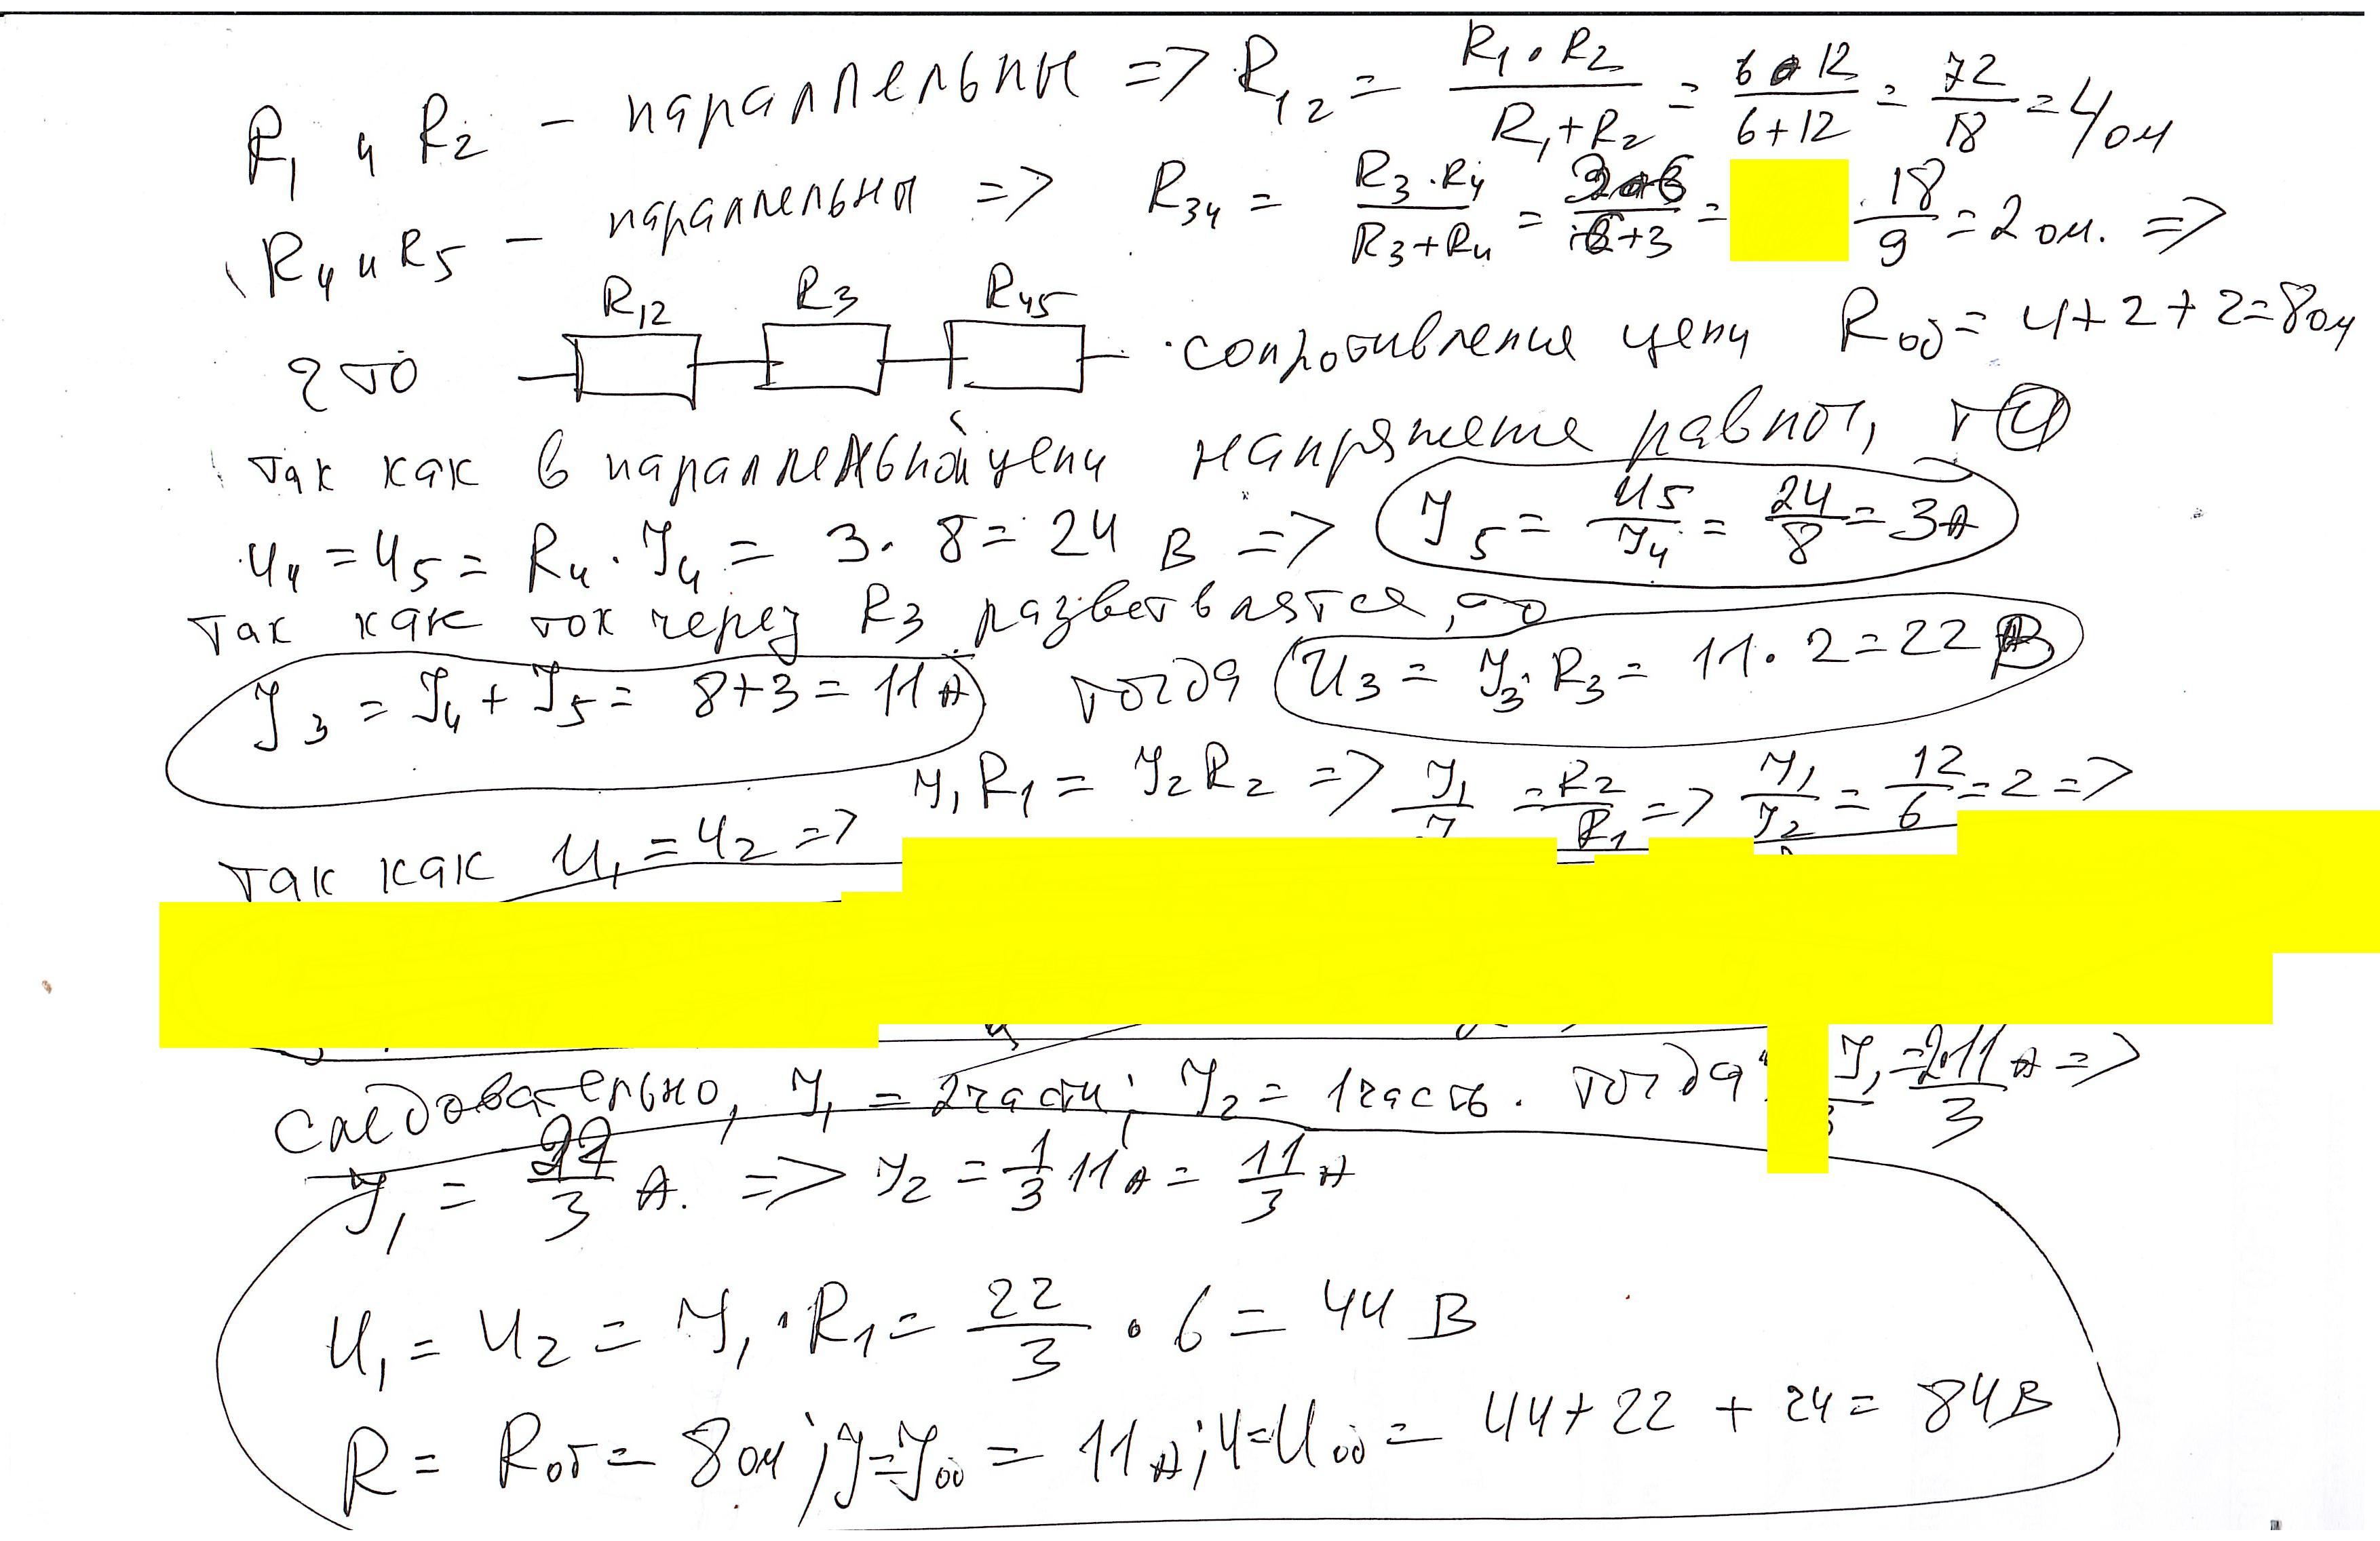 R₁ и R₂ - параллельны => R₁₂ = (R₁ · R₂)/(R₁+R₂) = (6·12)/(6+12) = 72/18 = 4 ом
R₄ и R₅ - параллельны => R₃₄ = (R₃·R₄)/(R₃+R₄) = (3·6)/(6+3) = 18/9 = 2 ом. =>
R₁₂ R₃ R₄₅
что сопротивление цепи Rоб = 4+2+2=8ом
так как в параллельной цепи напряжение равно,
U₄ = U₅ = R₄ · J₄ = 3 · 8 = 24 В => J₅ = U₅/J₄ = 24/8 = 3А
Так как ток через R₃ разветвляятся, то
J₃ = J₄ + J₅ = 8+3 = 11 А тогда U₃ = J₃·R₃ = 11·2=22 В
так как U₁ = U₂ => J₁R₁ = J₂R₂ => J₁/J = R₂/R₁ => J₁/J₂ = 12/6 = 2 =>
Следовательно, J₁ = 2части; J₂ = 1часть. тогда J₁ = 2·11/3 А =>
J₁ = 22/3 А. => J₂ = 1/3 11А = 11/3 А
U₁ = U₂ = J₁ · R₁ = 22/3 · 6 = 44 В
R = Rоб = 8ом; J=Jоб = 11А; U=Uоб = 44+22+24= 84В